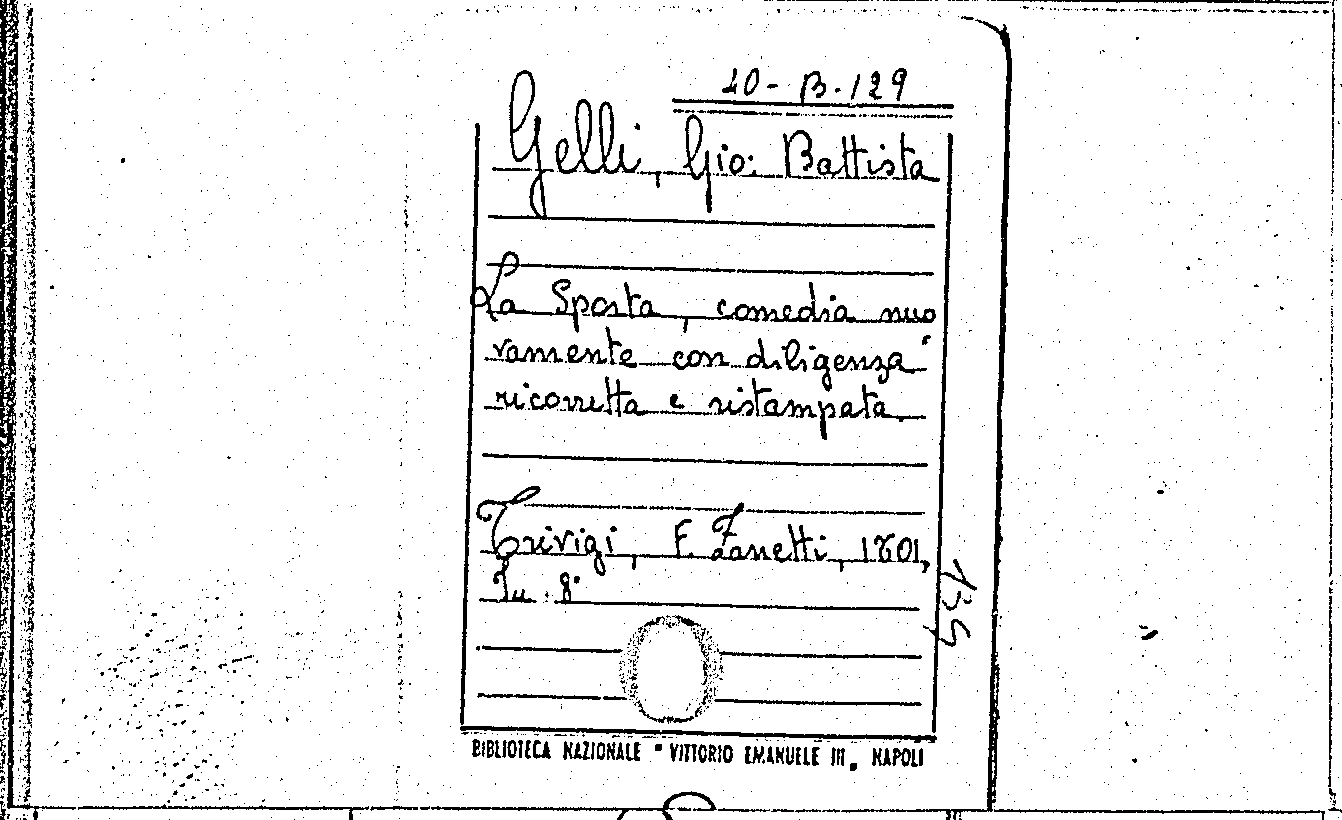 40-B.129
Gelli, Gio: Battista
La Sporta, comedia nuo
vamente con diligenza
ricorretta e ristampata.
Trivigi, F. Zanetti, 1601,
In 8°
BIBLIOTECA NAZIONALE "VITTORIO EMANUELE III" NAPOLI